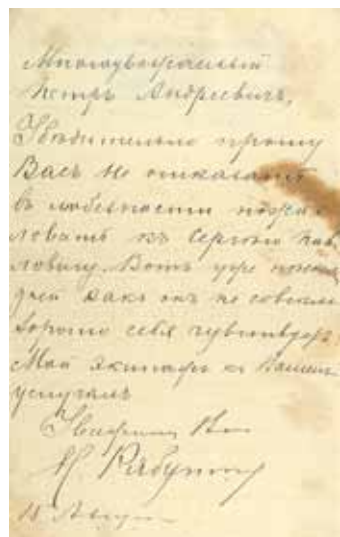 Многоуважаемый
Петръ Андреевичъ,
Убѣдительно прошу
Васъ не отказать
въ любезности пожа-
ловать къ Сергею Пав-
ловичу. Вотъ уже
дней какъ онъ не совсем
хорошо себя чувствуетъ.
Мой экипажъ къ Вашимъ
услугамъ
Уважающий Вас